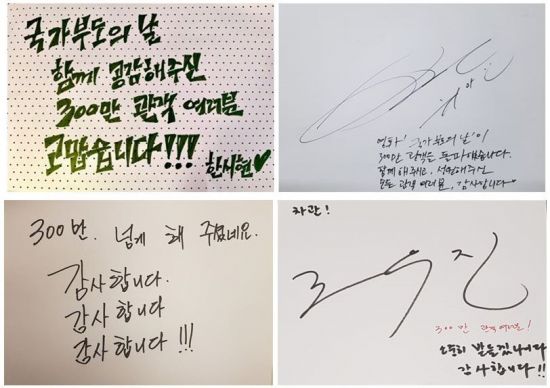 국가부도의 날
함께 공감해주신
300만 관객 여러분
고맙습니다!!!
한시현♥
영화 '국가부도의 날'이
300만 관객을 돌파했습니다.
함께 해주시고, 성원해주신
모든 관객 여러분, 감사합니다♡
300만. 넘게 해 주셨네요.
감사합니다.
감사합니다
감사합니다!!!
차관!
조우진
300만 관객 여러분!
소중히 받들겠나이다
감사합니다!!